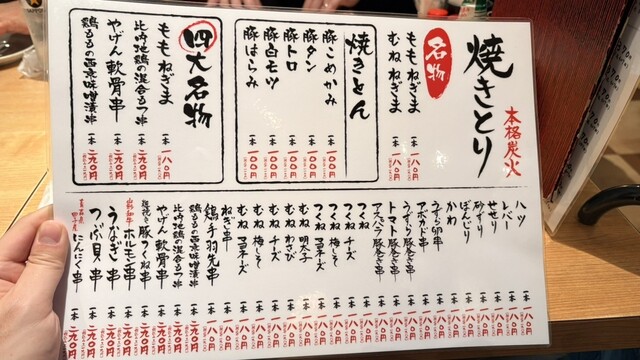 焼きとり
本格炭火
名物
ももねぎま 一本 一八〇円
むねねぎま 一本 一八〇円
焼きとん
豚こめかみ 一本 一〇〇円
豚タン 一本 一〇〇円
豚トロ 一本 一〇〇円
豚白モツ 一本 一〇〇円
豚はらみ 一本 一〇〇円
四大名物
ももねぎま 一本 一八〇円
比内地鶏の混合もつ串 一本 二九〇円
やげん軟骨串 一本 二九〇円
鶏ももの西京味噌漬串 一本 二九〇円
ハツ 一本 一八〇円
レバー 一本 一八〇円
せせり 一本 一八〇円
砂ずり 一本 一八〇円
ぼんじり 一本 一八〇円
かわ 一本 一八〇円
うずら卵串 一本 一八〇円
アボカド串 一本 一八〇円
うずら豚巻き串 一本 一八〇円
トマト豚巻き串 一本 一八〇円
アスパラ豚巻き串 一本 一八〇円
つくね 一本 一八〇円
つくねチーズ 一本 一八〇円
つくね梅しそ 一本 一八〇円
つくねマヨネーズ 一本 一八〇円
むね明太子 一本 一八〇円
むねわさび 一本 一八〇円
むねチーズ 一本 一八〇円
むね梅しそ 一本 一八〇円
むねマヨネーズ 一本 一八〇円
ねぎ串 一本 一八〇円
鶏手羽先串 一本
鶏ももの西京味噌漬串 一本 二九〇円
比内地鶏の混合もつ串 一本 二九〇円
やげん軟骨串 一本 二九〇円
豚つくね串 一本 二九〇円
ホルモン串 一本 二九〇円
うなぎ串 一本 二九〇円
つぶ貝串 一本 二九〇円
青森県田子産にんにく串 一本 二九〇円